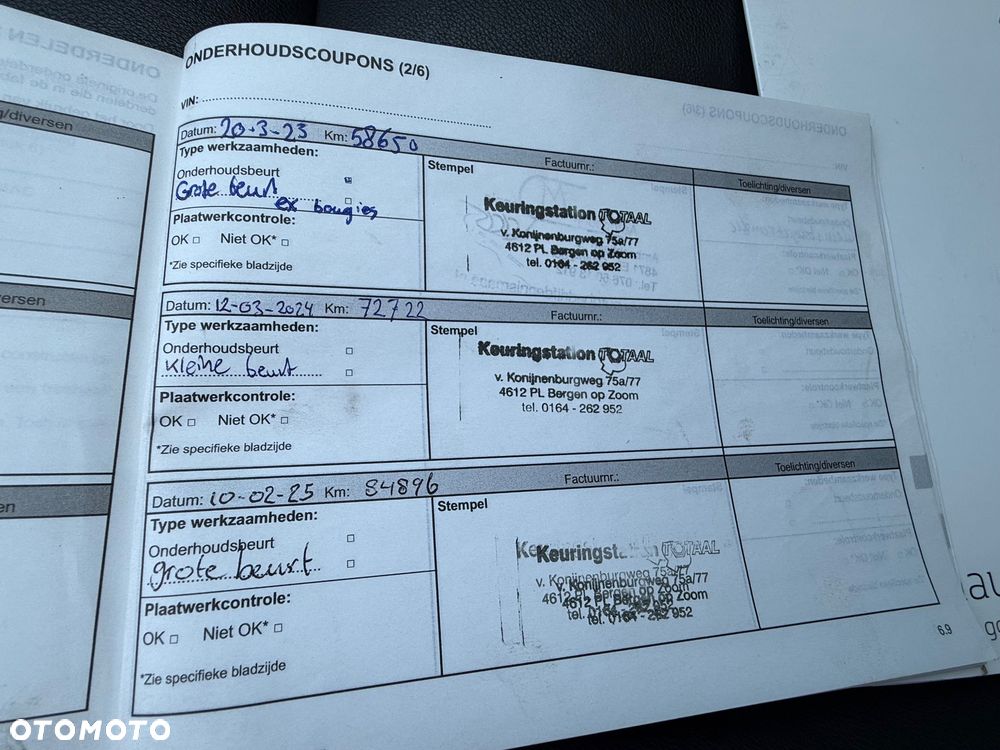 ONDERHOUDSCOUPONS (2/6)
VIN:
Datum: 20-3-23 Km: 58650
Factuurnr.:
Toelichting/diversen
Type werkzaamheden:
Onderhoudsbeurt
Grote beurt
ex bougies
Plaatwerkcontrole:
OK □ Niet OK* □
*Zie specifieke bladzijde
Stempel
Keuringstation TOTAAL
v. Konijnenburgweg 75a/77
4612 PL Bergen op Zoom
tel. 0164 - 262 952
Datum: 12-03-2024 Km: 72722
Factuurnr.:
Toelichting/diversen
Type werkzaamheden:
Onderhoudsbeurt □
kleine beurt □
Plaatwerkcontrole:
OK □ Niet OK* □
*Zie specifieke bladzijde
Stempel
Keuringstation TOTAAL
v. Konijnenburgweg 75a/77
4612 PL Bergen op Zoom
tel. 0164 - 262 952
Datum: 10-02-25 Km: 84896
Factuurnr.:
Toelichting/diversen
Type werkzaamheden:
Onderhoudsbeurt □
grote beurt □
Plaatwerkcontrole:
OK □ Niet OK* □
*Zie specifieke bladzijde
Stempel
TOTAAL
v. Konijnenburgweg 75a/77
4612 PL Bergen op Zoom
tel. 0164 - 262 952
6.9
OTOMOTO